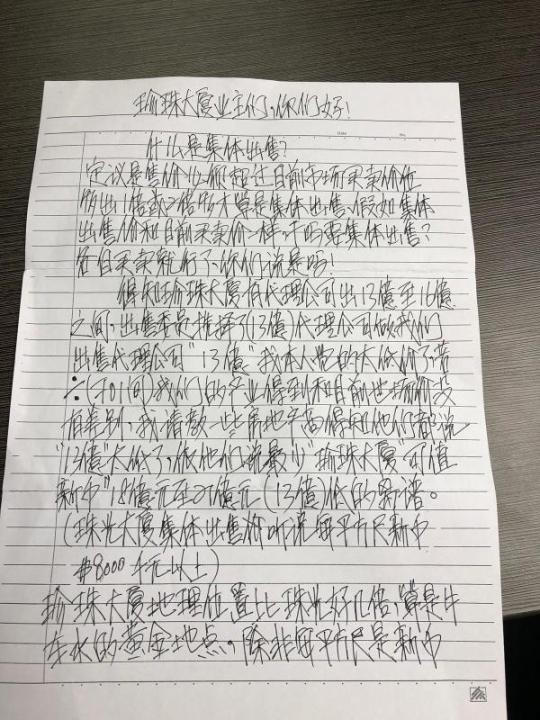 瑜珠大厦业主们,你们好!
什么是集体出售?
定议是售价必须超过目前市场买卖价位
多出1倍或2倍多才算是集体出售,假如集体
出售价和目前买卖价一样,干吗要集体出售?
各自买卖就行了,你们说是吗!
得知瑜珠大厦代理公司出13億至16億
之间,出售委员选择了(13億)代理公司做我们
出售代理公司"13億"我本人觉的太低价了若
÷(701间)我们的产业得到和目前市场价没
有差别,我请教一些房地产商得知他们都说
"13億"太低了,依他们说最少"瑜珠大厦"可值
新币"18億元至21億元(13億)低的离谱。
(珠光大厦集体出售前听说每平方尺新币
$8000千元以上)
瑜珠大厦地理位置比珠光好几倍,算是牛
车水的黄金地点,除非每平方尺是新币